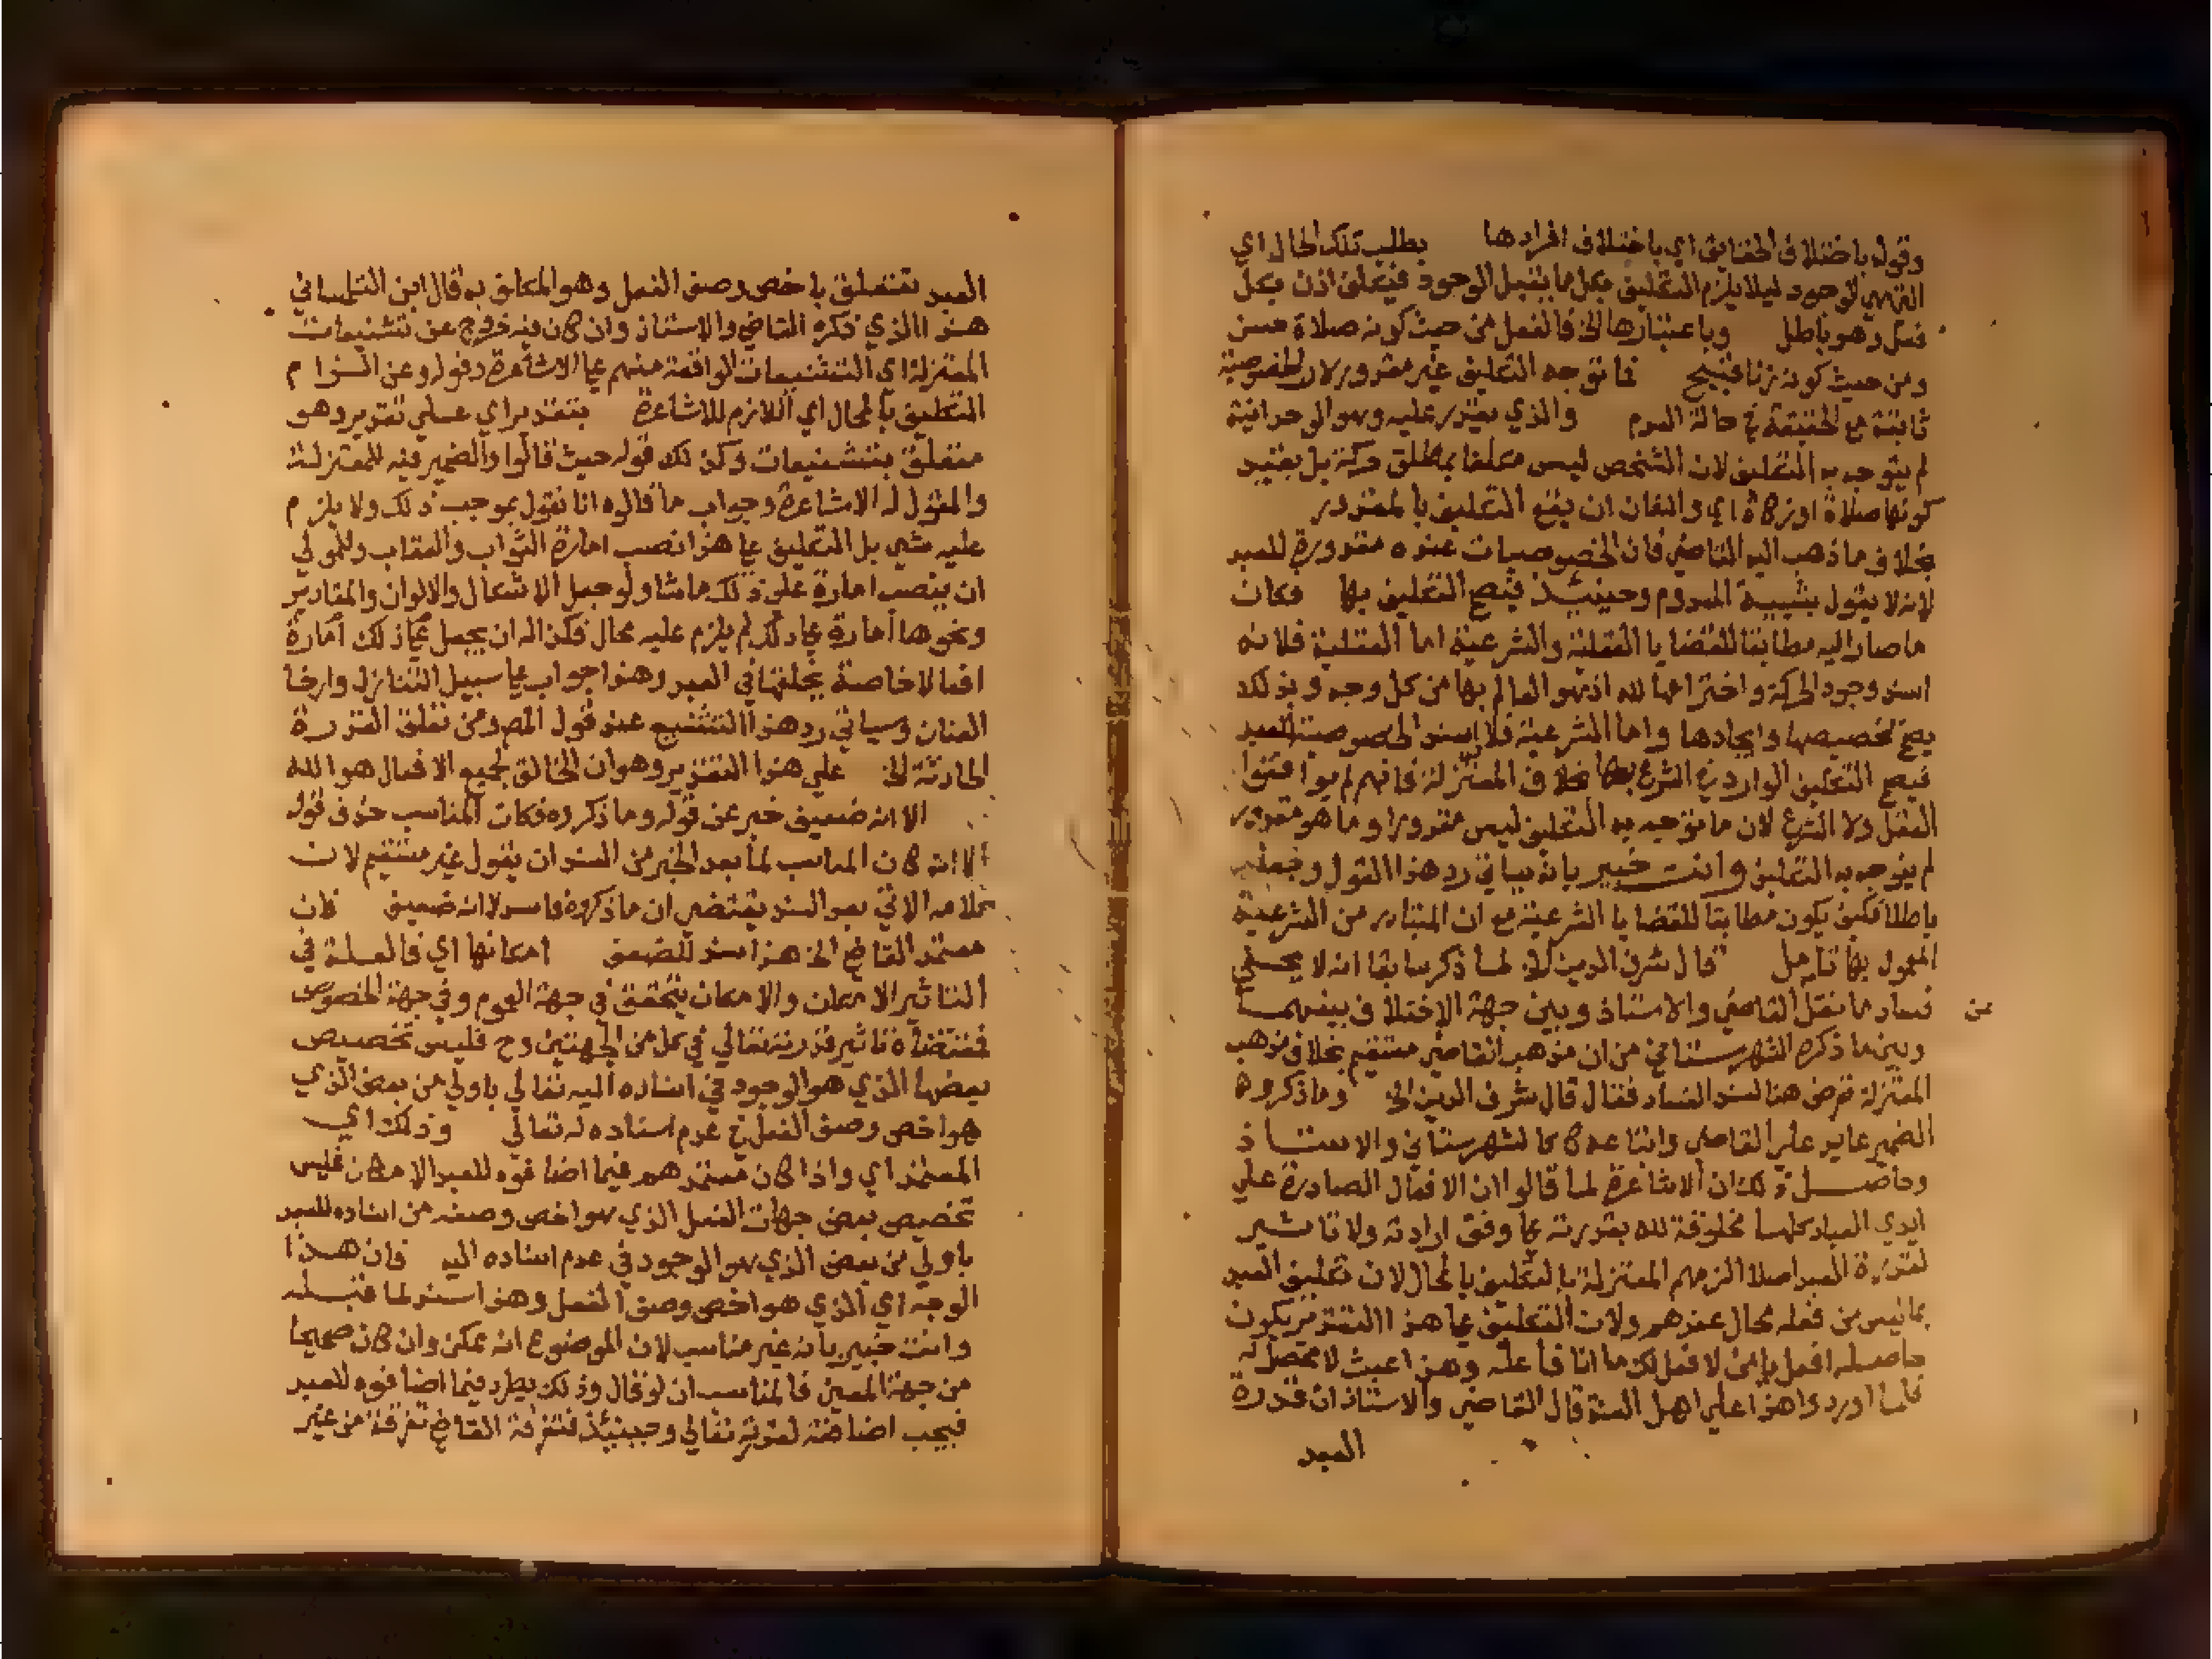 وقوله باختلاف الحقايق اي باختلاف افرادها بطلب تلك الحال اي
التهيي للوجود ليلا يلزم التعليق بكل ما يقبل الوجود فيتعلق اذن بكل
فعل وهو باطل وباعتبارها الخ فالفعل من حيث كونه صلاة حسن
ومن حيث كونه زنا قبيح فما توجه التعليق غير مقدور لان الخصوصية
ثابتة مع الحقيقة في حالة العدم والذي يقدر عليه وهو الوحدانية
لم يتوجه به التعليق لان الشخص ليس مكلفا بمطلق حركة بل بقيد
كونها صلاة او زكاة اي والفان ان يقع التعليق بالمقدور
بخلاف ما ذهب اليه القاضي فان الخصوصيات عنده مقدورة للعبد
لانه لا يقول بشيية المعدوم وحينئذ فيصح التعليق بها فكان
ما صار اليه مطابقا للقضايا العقلية والشرعية اما العقلية فلانه
اسند وجود الحركة واختراعها لله اذ هو العالم بها من كل وجه وبذلك
يصح تخصيصها وايجادها واما الشرعية فلا سند الخصوصية للعبد
فيصح التعليق الوارد في الشرع بها بخلاف المعتزلة فانهم لم يوافقوا
العقل ولا الشرع لان ما توجه به التعليق ليس مقدورا وما هو مقدور
لم يتوجه به التعليق وانت خبير بانه سياتي رد هذا القول وجعله
باطلا فكيف يكون مطابقا للقضايا الشرعية مع ان المتبادر من الشرعية
المعمول بها تامل قال شرف الدين الخ لما ذكر سابقا انه لا يخفى
من فساد ما نقل القاضي والاستاذ وبين جهة الاختلاف بينهما
وبين ما ذكره الشهرستاني من ان مذهب القاضي مستقيم بخلاف مذهب
المعتزلة تعرض هنا لسند الفساد فقال قال شرف الدين الخ وما ذكروه
الضمير عايد على القاضي واتباعه كالشهرستاني والاستاذ
وحاصل ذلك ان الاشاعرة لما قالوا ان الافعال الصادرة على
ايدي العباد كلها مخلوقة لله بقدرته على وفق ارادته ولا تاثير
لقدرة العبد اصلا الزمهم المعتزلة بالتعليق بالمحال لان تعليق العبد
بما ليس من فعله محال عندهم ولان التعليق على هذا التقدير يكون
حاصله افعل يا من لا فعل لك ما انا فاعله وهذا عبث لا محصل له
فلما اوردوا هذا على اهل السنة قال القاضي والاستاذ ان قدرة
العبد
العبد تتعلق باخص وصف الفعل وهو المعلق به قال ابن التلمساني
هذا الذي ذكره القاضي والاستاذ وان كان فيه خروج عن تشنيعات
المعتزلة اي التشنيعات الواقعة منهم على الاشاعرة وقوله وعن الزام
التعليق بالمحال اي اللازم للاشاعرة بتقدير اي على تقدير وهو
متعلق بتشنيعات وكذلك قوله حيث قالوا والضمير فيه للمعتزلة
والمقول له الاشاعرة وجواب ما قالوه انا نقول بموجب ذلك ولا يلزم
عليه شي بل التعليق على هذا نصب امارة الثواب والعقاب وللمولى
ان ينصب امارة على ذلك ما شا ولو جعل الاشكال والالوان والمقادير
ونحوها امارة على ذلك لم يلزم عليه محال فكذا له ان يجعل على ذلك امارة
افعالا خاصة يخلقها في العبد وهذا جواب على سبيل التنازل وارخا
العنان وسياتي رد هذا التشنيع عند قول المص ومن تعلق القدرة
الحادثة الخ على هذا التقدير وهو ان الخالق لجميع الافعال هو الله
الا انه ضعيف خبر عن قوله وما ذكروه فكان المناسب حذف قوله
الا انه كان المناسب لما بعد الخبر من السند ان يقول غير مستقيم لان
كلامه الاتي بعد السند يقتضي ان ما ذكروه فاسد لا انه ضعيف فان
معتمد القاضي الخ هذا سند للضعف امكانها اي فالعلة في
التاثير الامكان والامكان يتحقق في جهة العموم وفي جهة الخصوص
فمقتضاه تاثير قدرته تعالى في كل من الجهتين وح فليس تخصيص
بعضها الذي هو الوجود في اسناده اليه تعالى باولى من بعض الذي
هو اخص وصف الفعل في عدم اسناده له تعالى وذلك اي
المعتمد اي واذا كان معتمدهم فيما اضافوه للعبد الامكان فليس
تخصيص بعض جهات الفعل الذي هو اخص وصفه من اسناده للعبد
باولى من بعض الذي هو الوجود في عدم اسناده اليه فان هذا
الوجه اي الذي هو اخص وصف الفعل وهذا سند لما قبله
وانت خبير بانه غير مناسب لان الموضوع انه ممكن وان كان صحيحا
من جهة المعنى فالمناسب ان لو قال وذلك يطرد فيما اضافوه للعبد
فيجب اضافته لقدرته تعالى وحينئذ فتفرقة القاضي تفرقة من غير